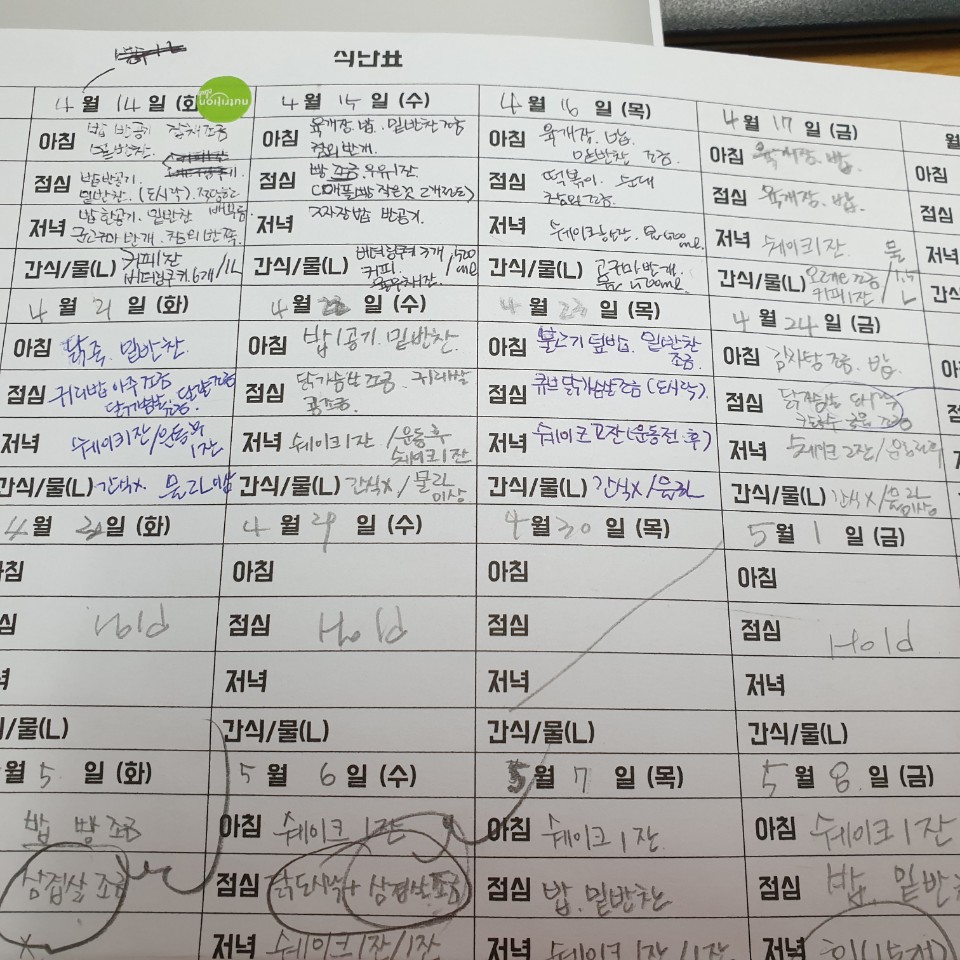 식단표
4월 14일 (화) nutrilite
4월 15일 (수)
4월 16일 (목)
4월 17일 (금)
월
아침 밥 반공기 잡채 조금
밑반찬
아침 육개장. 밥. 밑반찬 조금
참외 반개.
아침 육개장. 밥.
밑반찬 조금.
아침 육개장. 밥.
아침
점심 밥 반공기.
밑반찬. (도시락).
점심 빵 조금 우유 1잔
점심 떡볶이. 순대
참외 조금.
점심 육개장. 밥.
점심
저녁 밥 한공기. 밑반찬
군고구마 반개. 참외 반쪽.
저녁 짜장밥 반공기.
저녁 쉐이크 한잔.
저녁 쉐이크 1잔. 물
저녁
간식/물(L) 커피 1잔
버터링쿠키 6개 / 1L
간식/물(L) 버터링쿠키 3개 / 1,500
커피. ml
간식/물(L) 고구마 반개.
간식/물(L) 조금 / 1.5
커피 1잔 L
간식
4월 21일 (화)
4월 22일 (수)
4월 23일 (목)
4월 24일 (금)
아침 닭죽. 밑반찬.
아침 밥 1공기. 밑반찬.
아침 불고기 덮밥. 밑반찬
조금
아침 감자탕 조금. 밥.
아침
점심 귀리밥 아주 조금
점심 닭가슴살 조금
점심 큐브 닭가슴살 조금 (도시락).
점심 닭가슴살 도시락
저녁 쉐이크 1잔/운동 후
1잔
저녁 쉐이크 1잔 / 운동 후
쉐이크 1잔
저녁 쉐이크 2잔 (운동 전.후)
저녁 쉐이크 2잔/운동
간식/물(L) 간식X 물 2L 이상
간식/물(L) 간식X / 물 2L
이상
간식/물(L) 간식X / 물 2L
간식/물(L) 간식X / 물 2L
이상
4월 일 (화)
4월 29일 (수)
4월 30일 (목)
5월 1일 (금)
아침
아침
아침
아침
점심 Hold
점심 Hold
점심
점심 Hold
저녁
저녁
저녁
저녁
간식/물(L)
간식/물(L)
간식/물(L)
간식/물(L)
월 5일 (화)
5월 6일 (수)
5월 7일 (목)
5월 8일 (금)
밥 빵 조금
아침 쉐이크 1잔
아침 쉐이크 1잔
아침 쉐이크 1잔
삼겹살 조금
점심 닭도시락 + 삼겹살 조금
점심 밥. 밑반찬
점심 밥. 밑반찬
X.
저녁 쉐이크 1잔/1잔
저녁 쉐이크 1잔/1잔
저녁 회